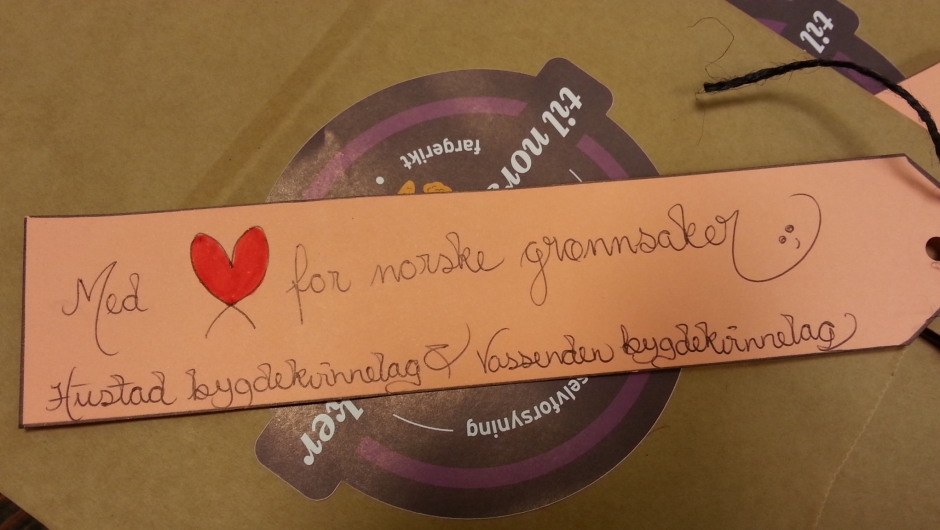 til
til nors
fargerikt
Med ❤ for norske grønnsaker
Hustad bygdekvinnelag & Vassenden bygdekvinnelag
selvforsyning
ker